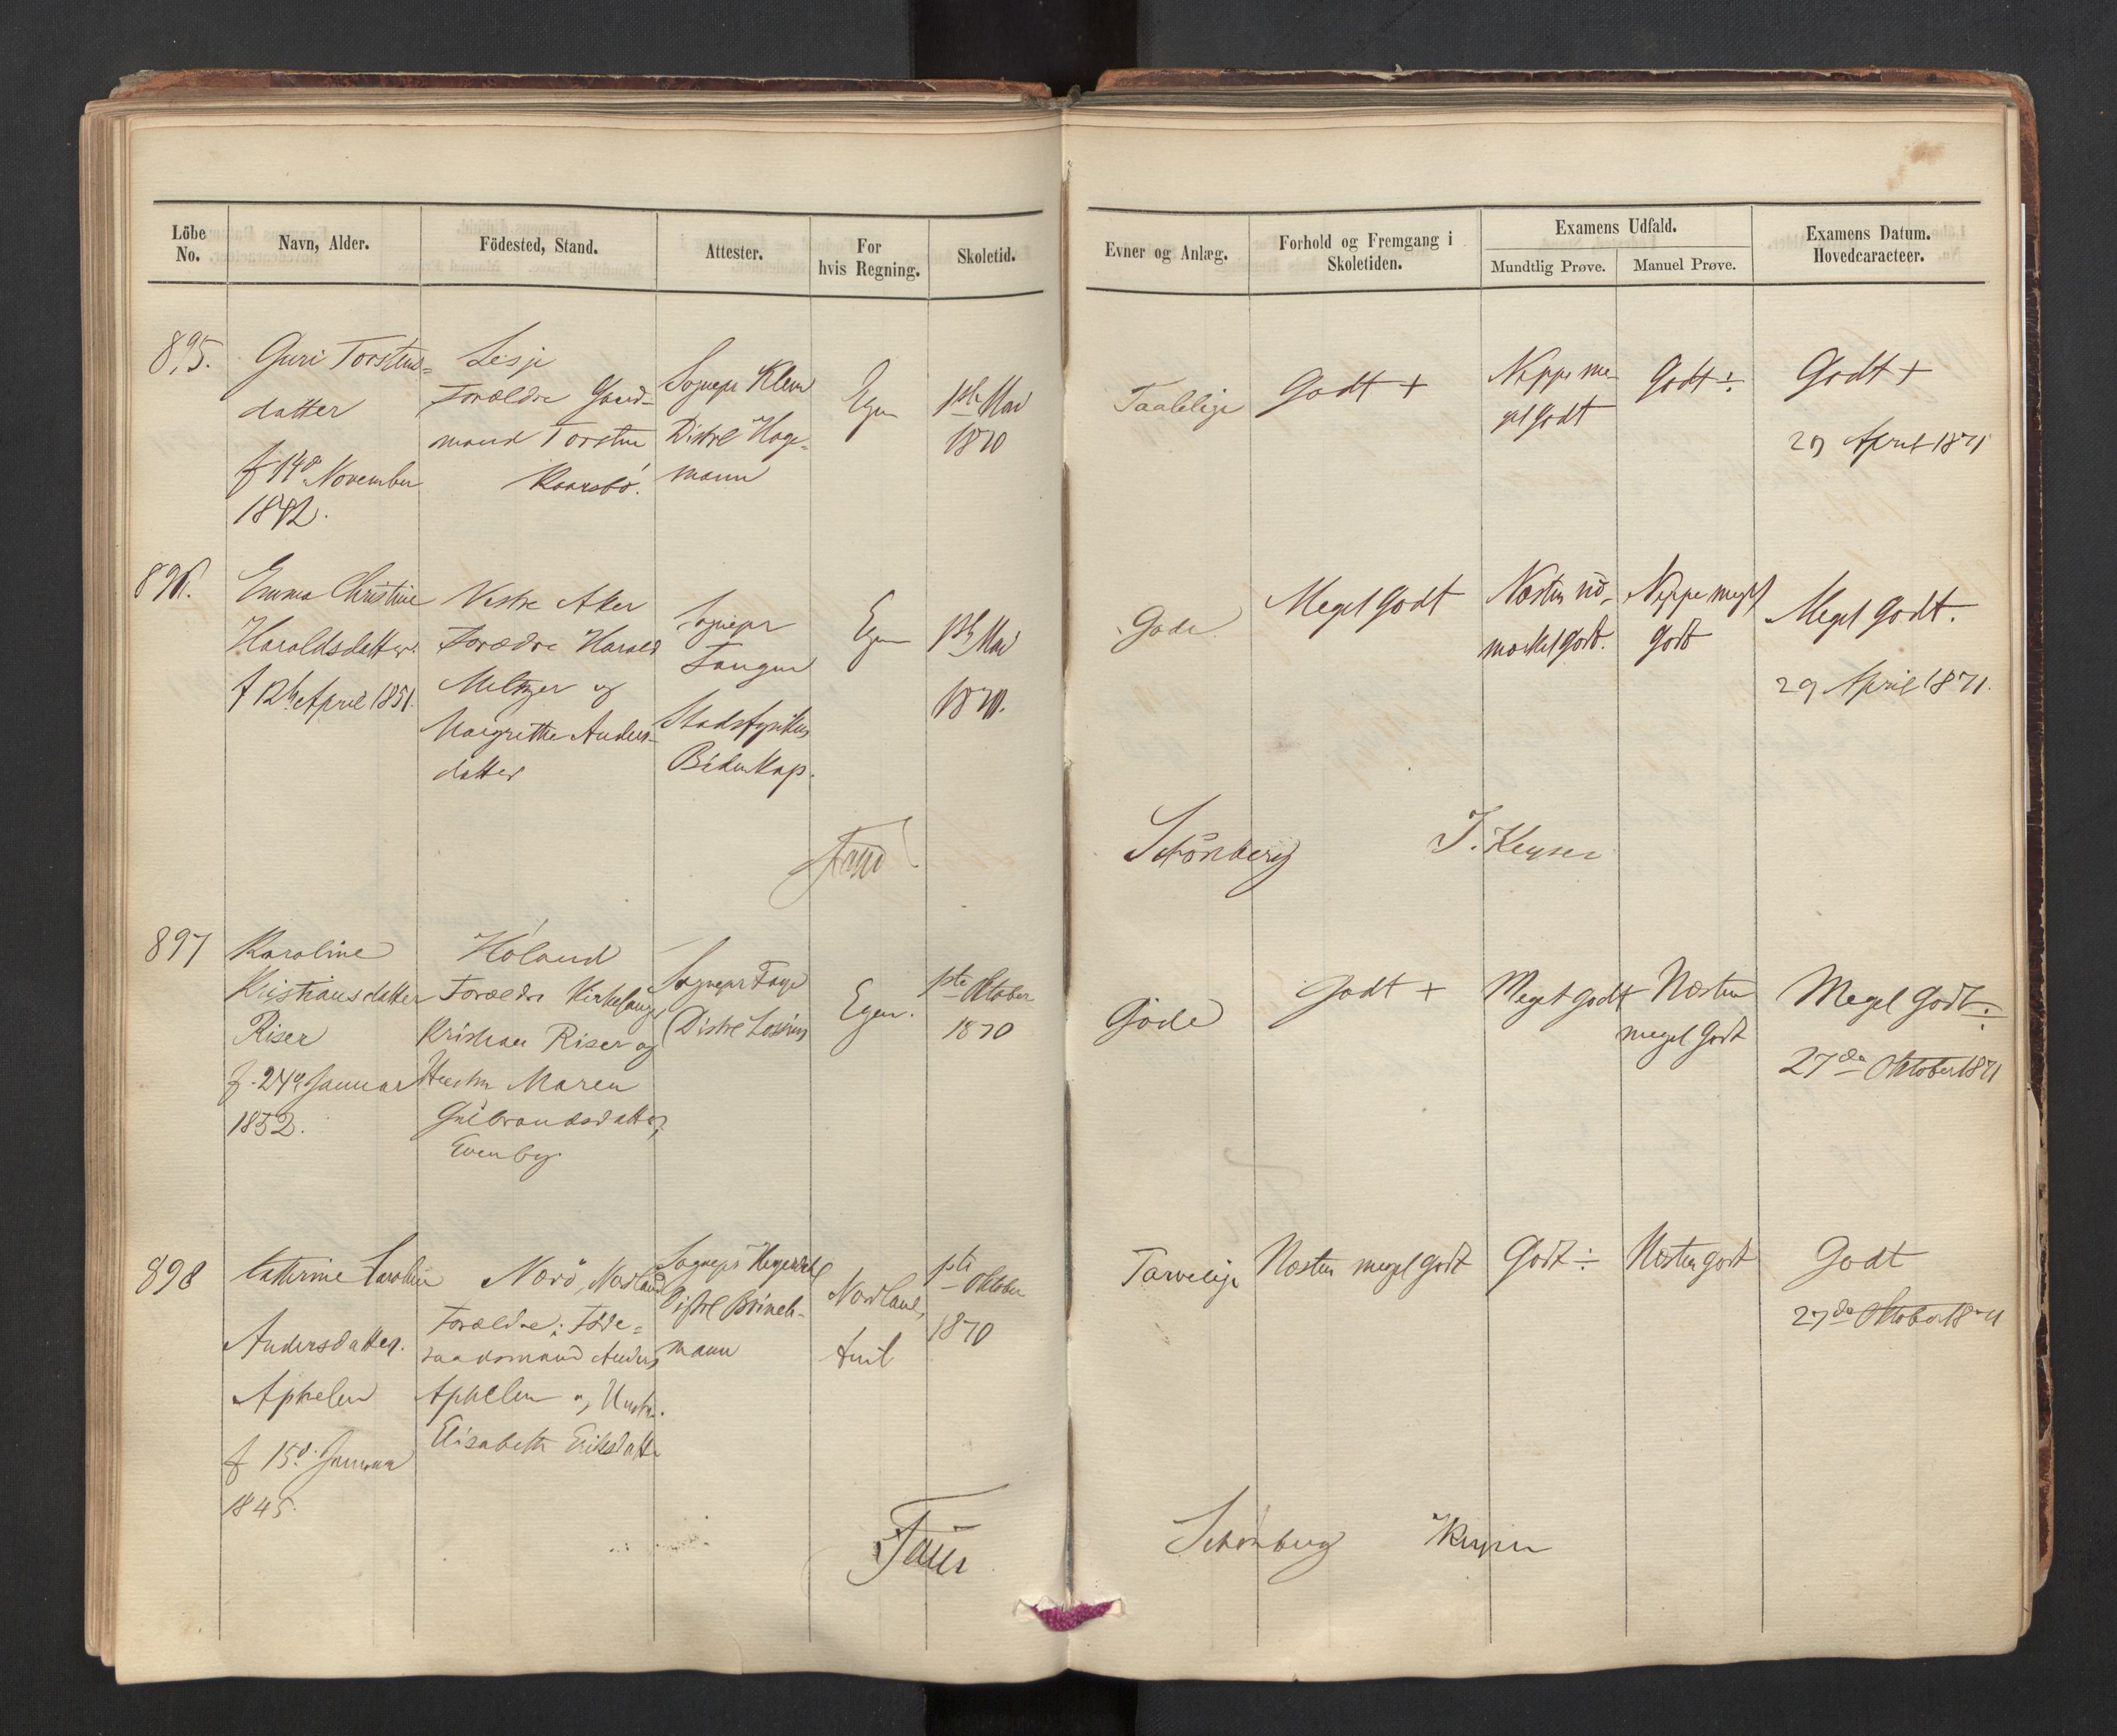 Löbe No.
Navn, Alder.
Födested, Stand.
Attester.
For hvis Regning.
Skoletid.
Evner og Anlæg.
Forhold og Fremgang i Skoletiden.
Examens Udfald.
Mundtlig Prøve.
Manuel Prøve.
Examens Datum. Hovedcaracteer.
895.
Guri Torstens=
datter
f 14d November
1842.
Lesje
Forældre Gaard-
mand Torsten
Sognepr Klem
Distrl Hage-
mann
Egen
1ste Mai
1870
Taalelige
Godt +
Neppe me
get godt
Godt ÷
Godt +
29 April 1871
896.
Emma Christine
Haraldsdatter.
f 12te April 1851.
Vestre Aker
Forældre Harald
Meltzer og
Margrethe Anders-
datter
Sognepr
Tangen
Stadsfysikus
Bidenkap.
Egen
1ste Mai
1870.
Gode
Meget godt
Næsten ud-
mærket godt.
Neppe meget
godt
Meget godt.
29 April 1871.
Faye
Schönberg
J. Keyser
897
Karoline
Kristiansdatter
Riser
f. 24d Januar
1852.
Höland
Forældre Kirkesanger
Kristian Riser og
Hustru Maren
Gulbrandsdatter,
Evenby.
Sognepr Faye
Distrl Lossius
Egen.
1ste Oktober
1870
Gode
Godt +
Meget godt
Næsten
meget godt
Meget godt ÷
27de Oktober 1871
898
Catterine Caroline
Andersdatter.
Aphelen
f 15d. Januar
1845.
Nærö, Nordland
Forældre; Föde=
raadsmand Anders
Aphelen og Hustru.
Elisabeth Eriksdatter
Sognepr
Distrl
mann
Nordlands
Amt
1ste Oktober
1870
Tarvelige
Næsten meget godt
Godt ÷
Næsten godt
Godt
27de Oktober 1871
Faye
Schönberg
Keyser